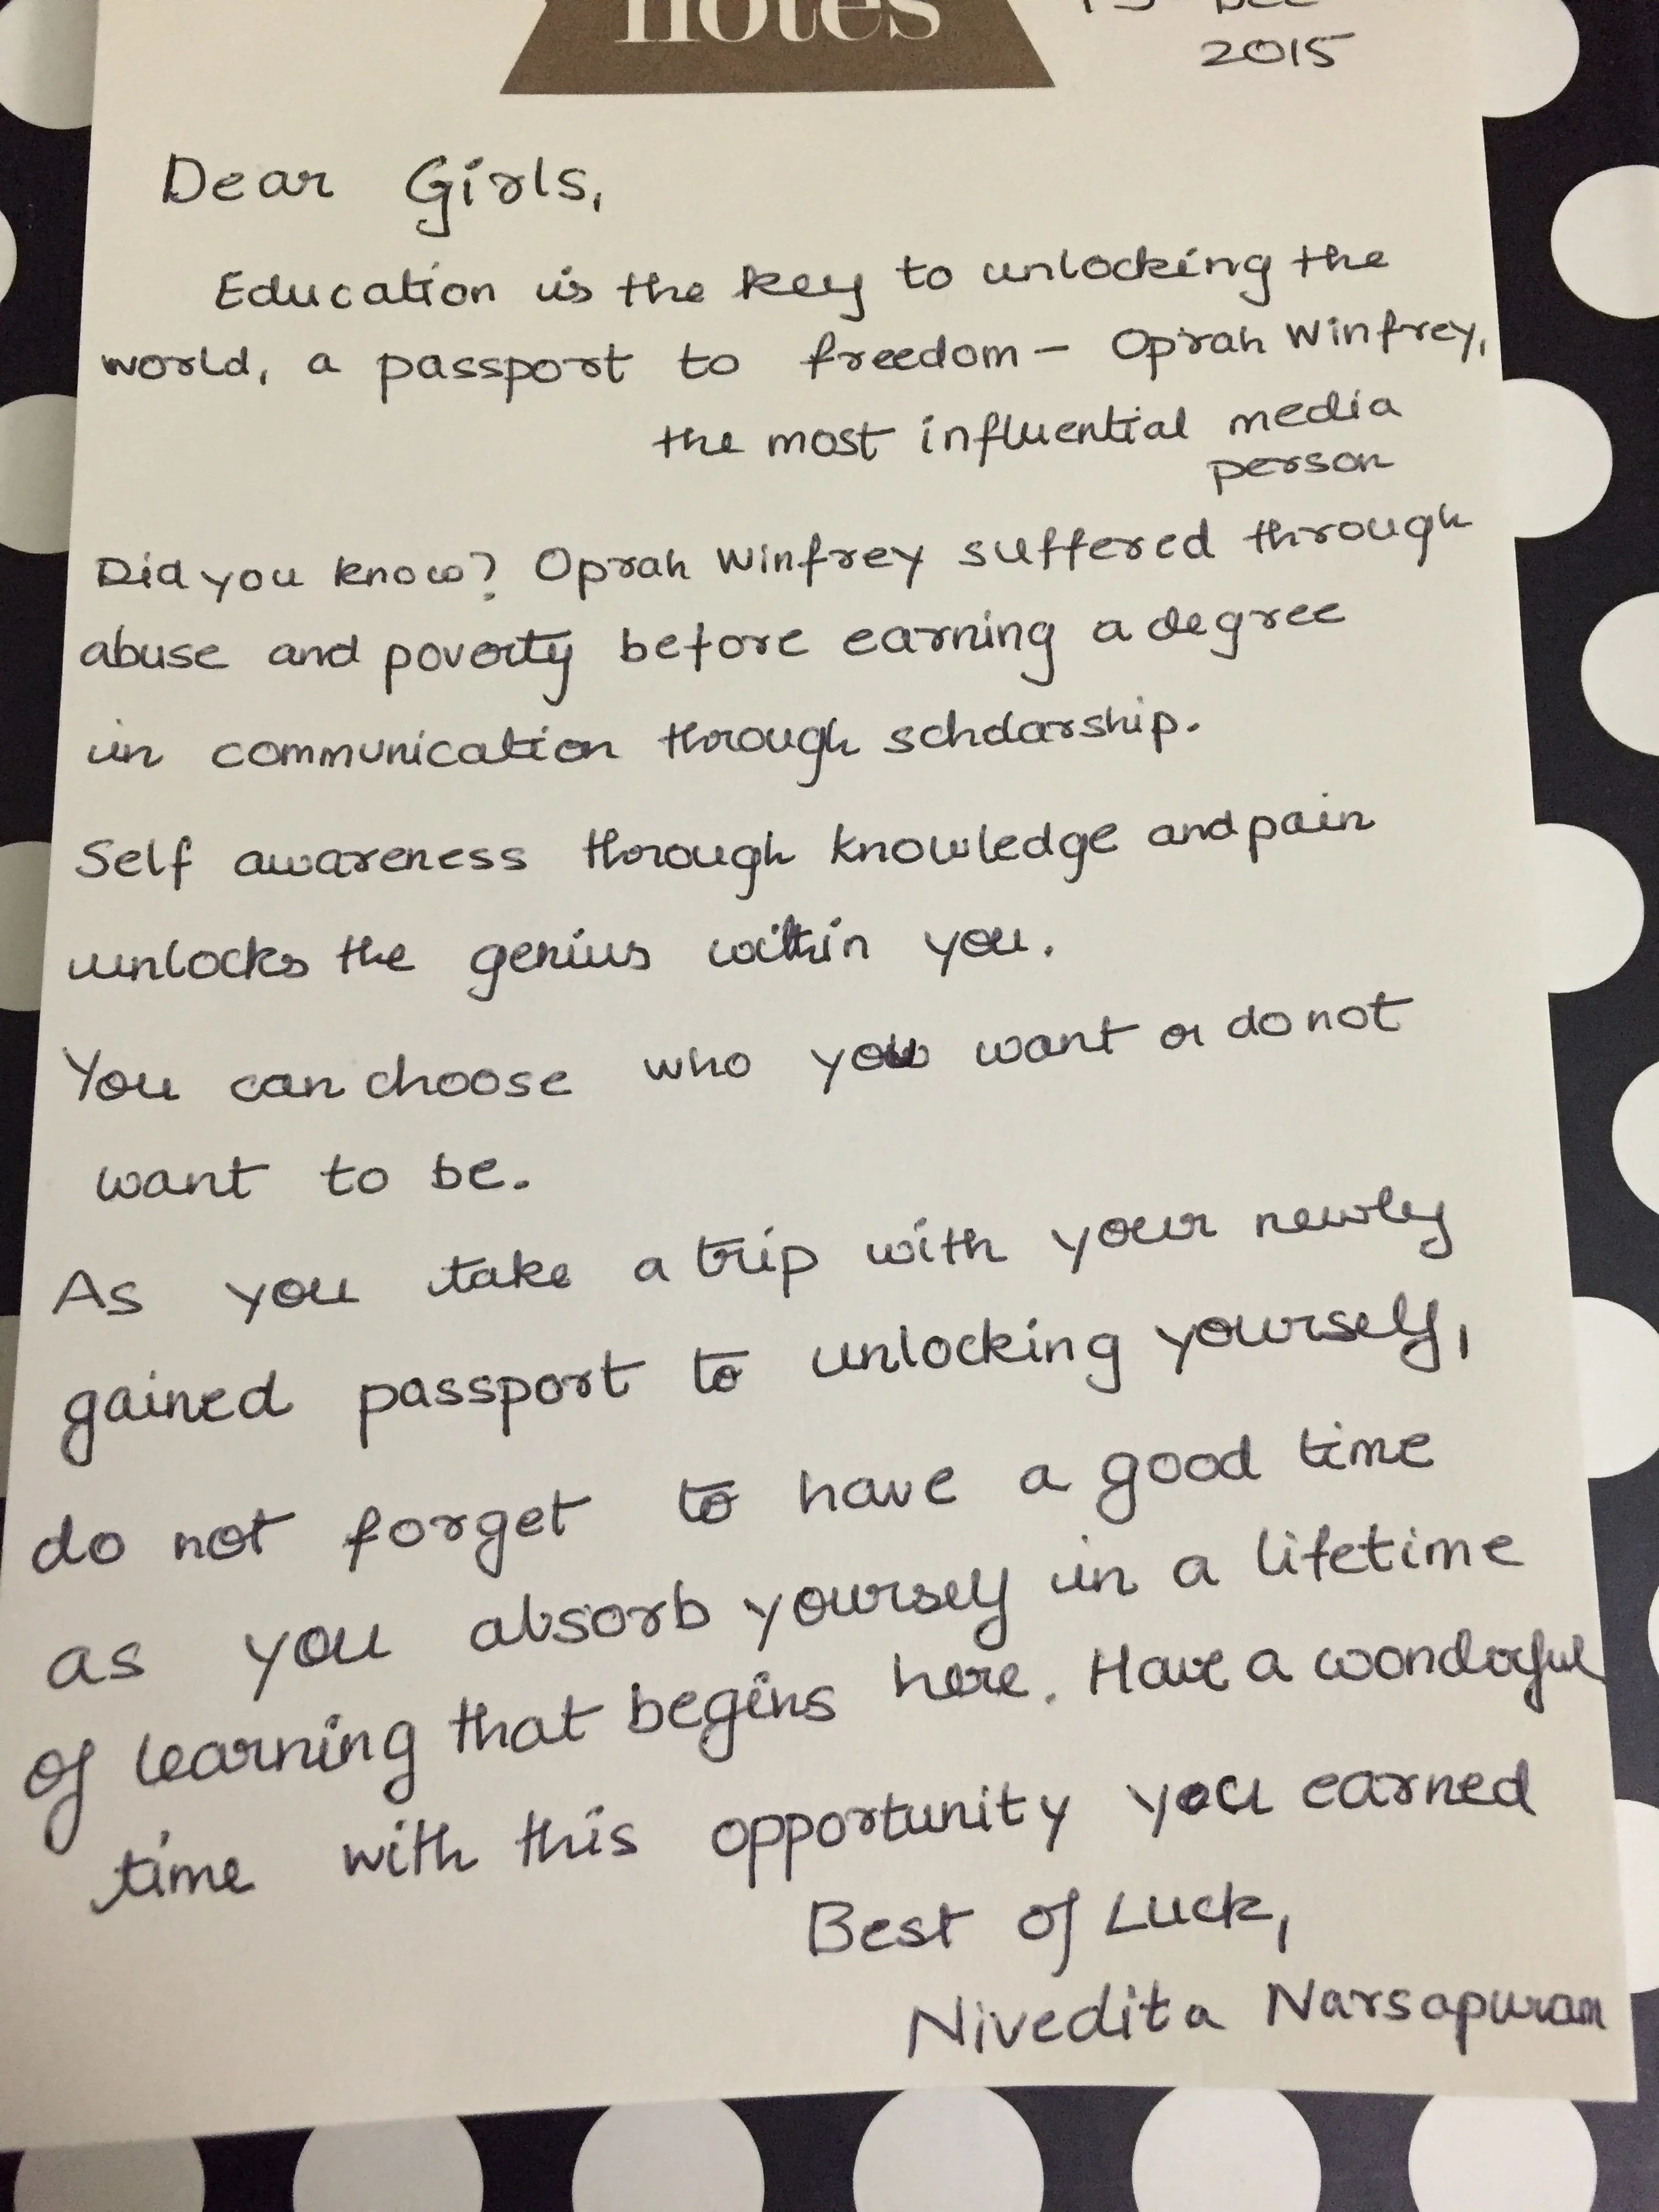 notes
Dec
2015
Dear Girls,
Education is the key to unlocking the
world, a passport to freedom – Oprah Winfrey,
the most influential media
person
Did you know? Oprah Winfrey suffered through
abuse and poverty before earning a degree
in communication through scholarship.
Self awareness through knowledge and pain
unlocks the genius within you.
You can choose who you want or do not
want to be.
As you take a trip with your newly
gained passport to unlocking yourself,
do not forget to have a good time
as you absorb yourself in a lifetime
of learning that begins here. Have a wonderful
time with this opportunity you earned
Best of Luck,
Nivedita Narsapuram